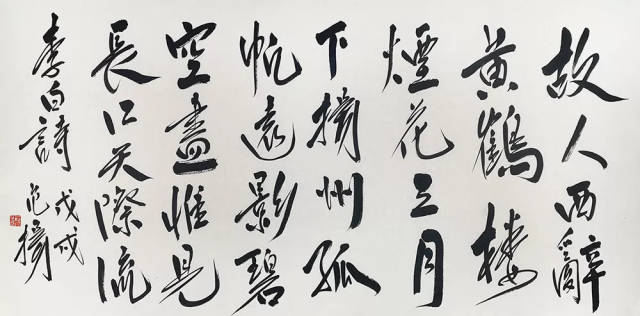 故人西辭
黄鶴樓
煙花三月
下揚州孤
帆遠影碧
空盡惟見
長江天際流
李白詩
戊戌
范揚